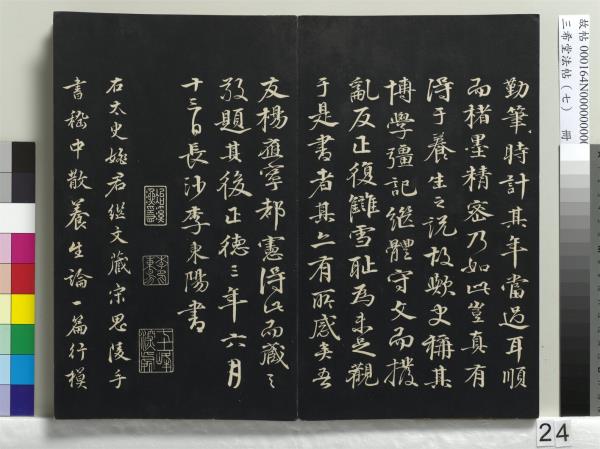 勤筆時計其年當過耳順
而楮墨精密乃如此豈真有
得于養生之說故歟史稱其
博學彊記繼體守文而撥
亂反正復讎雪恥為未足觀
于是書者其亦有所感矣吾
友楊應寧都憲得此而藏之
敬題其後正德三年六月
十三日長沙李東陽書
右太史姚君繼文藏宋思陵手
書嵇中散養生論一篇行模
故帖 000164N000000000
三希堂法帖（七） 冊
24